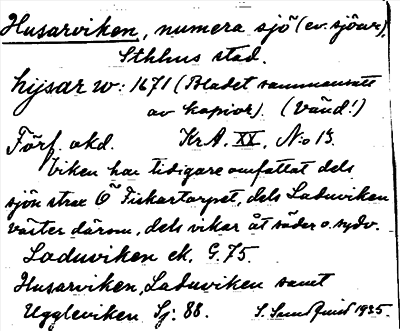 Husarviken, numera sjö (ev. sjöar),
Sthlms stad.
hijsar w: 1671 (Bladet sammansatt
av kopior). (Vänd!)
Förf. okd. KrA. XX, N:o 13.
Viken har tidigare omfattat dels
sjön strax Ö Fiskartorpet, dels Laduviken
väster därom, dels vikar åt söder o. sydv.
Laduviken ek. G. 75.
Husarviken, Laduviken samt
Uggleviken Sj: 88. S. Sundquist 1935.